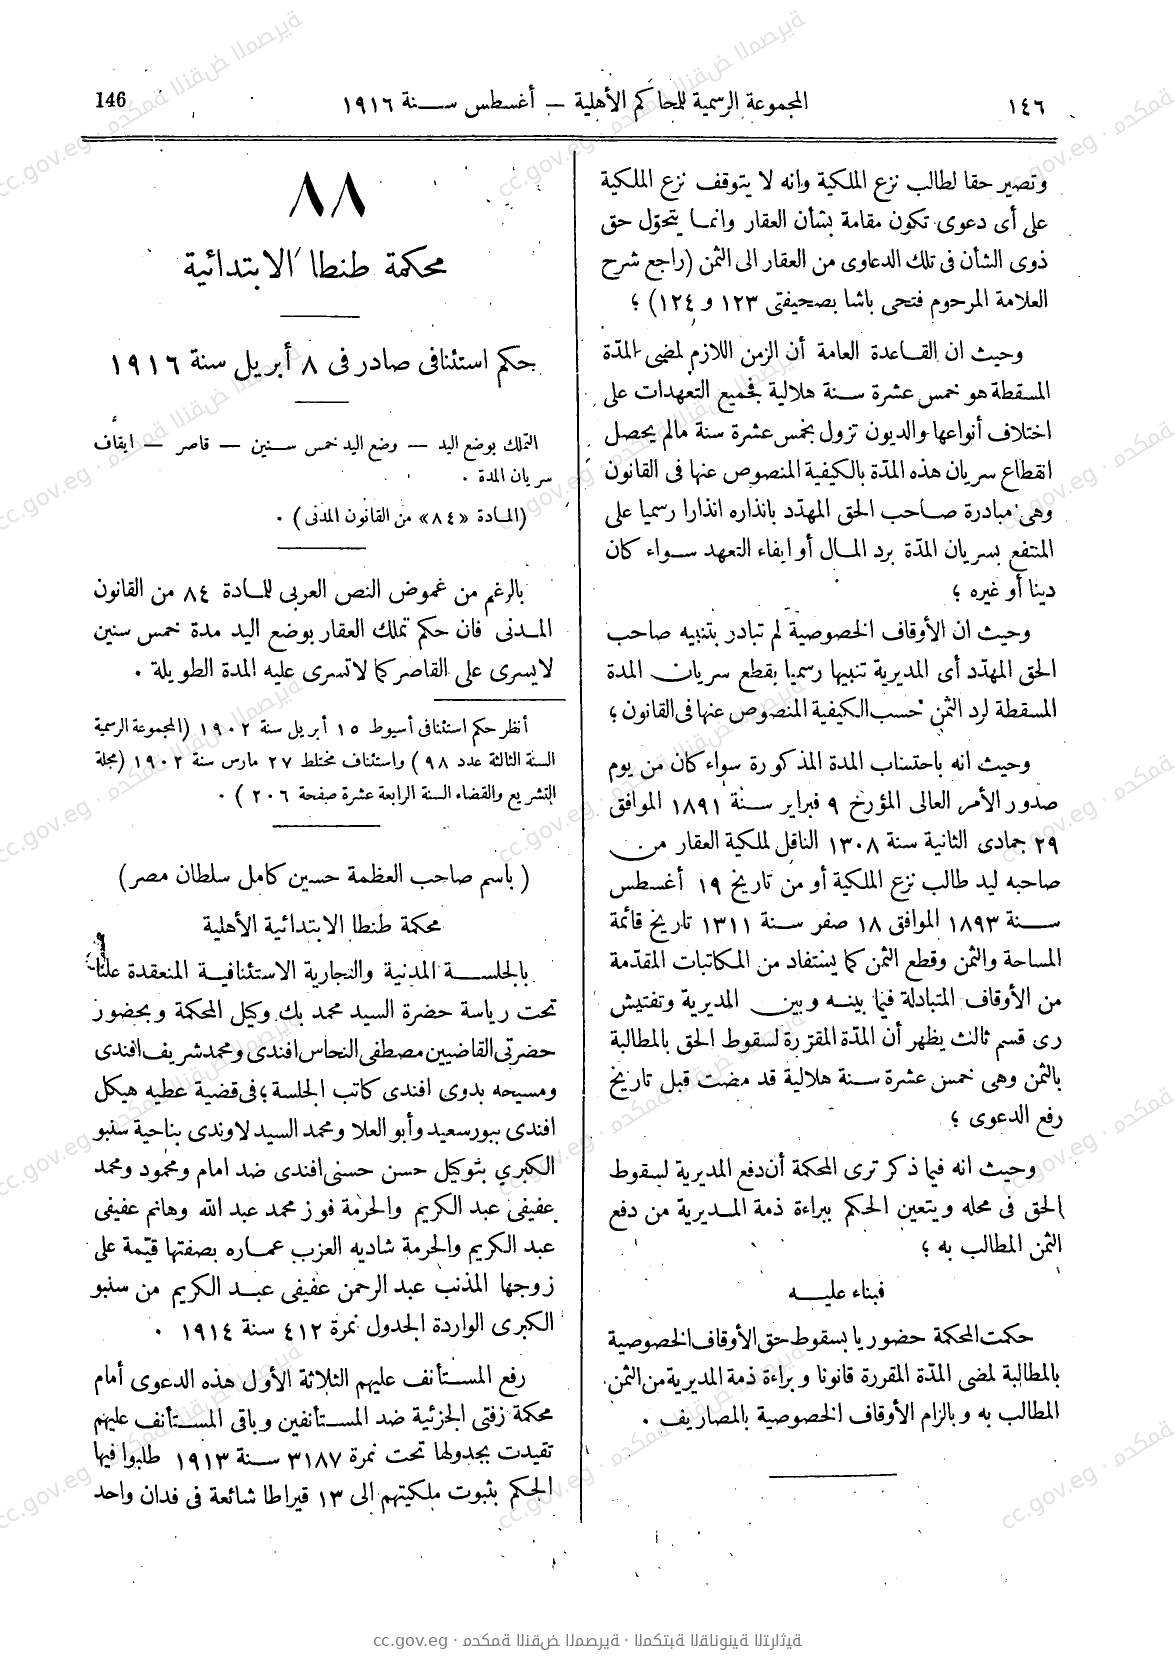 ١٤٦
المجموعة الرسمية للمحاكم الأهلية — أغسطس سنة ١٩١٦
146
وتصير حقا لطالب نزع الملكية وانه لا يتوقف نزع الملكية
على أى دعوى تكون مقامة بشأن العقار وانما يتحوّل حق
ذوى الشأن فى تلك الدعاوى من العقار الى الثمن (راجع شرح
العلامة المرحوم فتحى باشا بصحيفتى ١٢٣ و ١٢٤) ؛
وحيث ان القاعدة العامة أن الزمن اللازم لمضى المدّة
المسقطة هو خمس عشرة سنة هلالية فجميع التعهدات على
اختلاف أنواعها والديون تزول بخمس عشرة سنة مالم يحصل
انقطاع سريان هذه المدّة بالكيفية المنصوص عنها فى القانون
وهى مبادرة صاحب الحق المهدّد بانذاره انذارا رسميا على
المنتفع بسريان المدّة برد المال أو ايفاء التعهد سواء كان
دينا أو غيره ؛
وحيث ان الأوقاف الخصوصية لم تبادر بتنبيه صاحب
الحق المهدّد أى المديرية تنبيها رسميا بقطع سريان المدة
المسقطة لرد الثمن حسب الكيفية المنصوص عنها فى القانون ؛
وحيث انه باحتساب المدة المذكورة سواء كان من يوم
صدور الأمر العالى المؤرخ ٩ فبراير سنة ١٨٩١ الموافق
٢٩ جمادى الثانية سنة ١٣٠٨ الناقل لملكية العقار من
صاحبه ليد طالب نزع الملكية أو من تاريخ ١٩ أغسطس
سنة ١٨٩٣ الموافق ١٨ صفر سنة ١٣١١ تاريخ قائمة
المساحة والثمن وقطع الثمن كما يستفاد من المكاتبات المقدّمة
من الأوقاف المتبادلة فيما بينه وبين المديرية وتفتيش
رى قسم ثالث يظهر أن المدّة المقرّرة لسقوط الحق بالمطالبة
بالثمن وهى خمس عشرة سنة هلالية قد مضت قبل تاريخ
رفع الدعوى ؛
وحيث انه فيما ذكر ترى المحكمة أن دفع المديرية لسقوط
الحق فى محله ويتعين الحكم ببراءة ذمة المديرية من دفع
الثمن المطالب به ؛
فبناء عليه
حكمت المحكمة حضوريا بسقوط حق الأوقاف الخصوصية
بالمطالبة لمضى المدّة المقررة قانونا وبراءة ذمة المديرية من الثمن
المطالب به وبالزام الأوقاف الخصوصية بالمصاريف .
٨٨
محكمة طنطا الابتدائية
حكم استئنافى صادر فى ٨ أبريل سنة ١٩١٦
التملك بوضع اليد — وضع اليد خمس سنين — قاصر — ايقاف
سريان المدة .
(المادة «٨٤» من القانون المدنى) .
بالرغم من غموض النص العربى للمادة ٨٤ من القانون
المدنى فان حكم تملك العقار بوضع اليد مدة خمس سنين
لا يسرى على القاصر كما لا تسرى عليه المدة الطويلة .
أنظر حكم استئنافى أسيوط ١٥ أبريل سنة ١٩٠٢ (المجموعة الرسمية
السنة الثالثة عدد ٩٨) واستئناف مختلط ٢٧ مارس سنة ١٩٠٢ (مجلة
التشريع والقضاء السنة الرابعة عشرة صفحة ٢٠٦) .
(باسم صاحب العظمة حسين كامل سلطان مصر)
محكمة طنطا الابتدائية الأهلية
بالجلسة المدنية والتجارية الاستئنافية المنعقدة علنا
تحت رياسة حضرة السيد محمد بك وكيل المحكمة وبحضور
حضرتى القاضيين مصطفى النحاس افندى ومحمد شريف افندى
ومسيحه بدوى افندى كاتب الجلسة ؛ فى قضية عطيه هيكل
افندى ببورسعيد وأبو العلا ومحمد السيد لاوندى بناحية سنبو
الكبري بتوكيل حسن حسنى افندى ضد امام ومحمود ومحمد
عفيفى عبد الكريم والحرمة فوز محمد عبد الله وهانم عفيفى
عبد الكريم والحرمة شاديه العزب عماره بصفتها قيّمة على
زوجها المذنب عبد الرحمن عفيفى عبد الكريم من سنبو
الكبرى الواردة الجدول نمرة ٤١٢ سنة ١٩١٤ .
رفع المستأنف عليهم الثلاثة الأول هذه الدعوى أمام
محكمة زفتى الجزئية ضد المستأنفين وباقى المستأنف عليهم
تقيدت بجدولها تحت نمرة ٣١٨٧ سنة ١٩١٣ طلبوا فيها
الحكم بثبوت ملكيتهم الى ١٣ قيراطا شائعة فى فدان واحد
cc.gov.eg · محكمة النقض المصرية · المكتبة القانونية التراثية